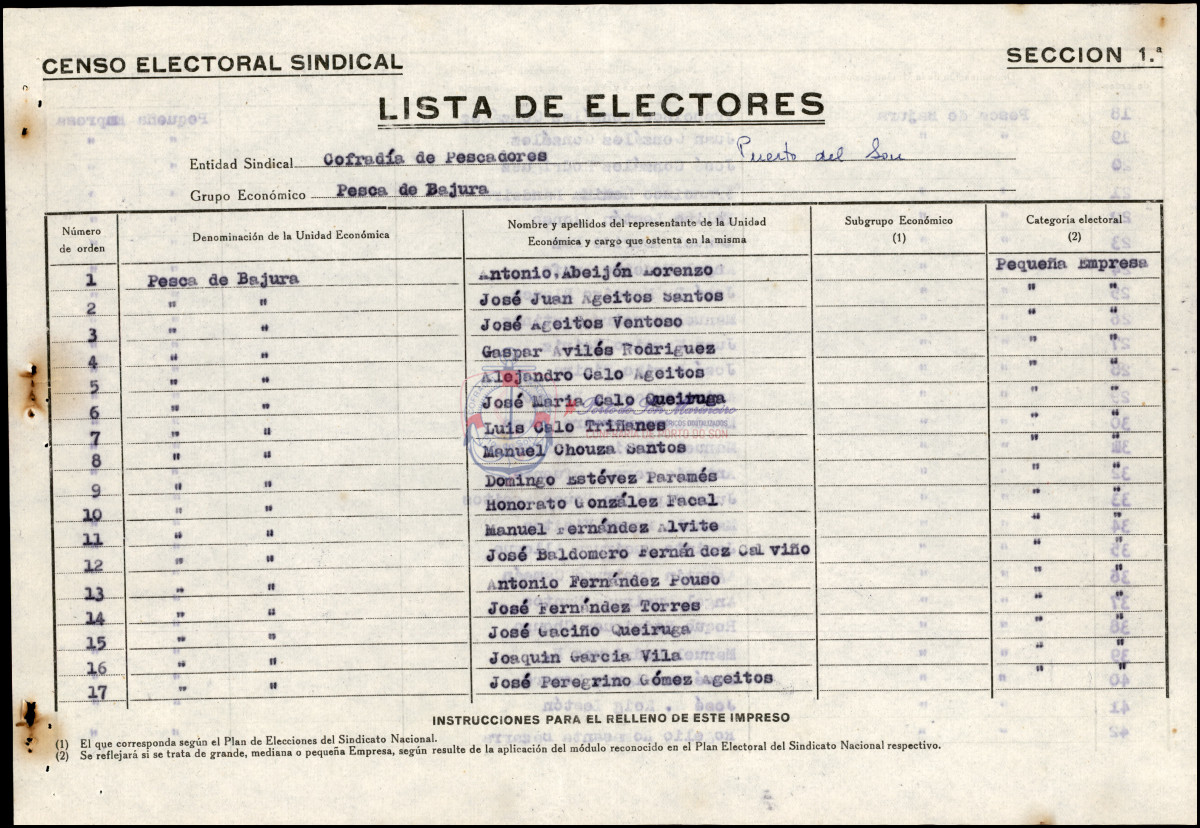 CENSO ELECTORAL SINDICAL
SECCION 1.ª
LISTA DE ELECTORES
Entidad Sindical Cofradía de Pescadores Puerto del Son
Grupo Económico Pesca de Bajura
Número de orden
Denominación de la Unidad Económica
Nombre y apellidos del representante de la Unidad Económica y cargo que ostenta en la misma
Subgrupo Económico (1)
Categoría electoral (2)
1 Pesca de Bajura Antonio Abeijón Lorenzo Pequeña Empresa
2 " " José Juan Ageitos Santos " "
3 " " José Ageitos Ventoso " "
4 " " Gaspar Avilés Rodriguez " "
5 " " Alejandro Calo Ageitos " "
6 " " José Maria Calo Queiruga " "
7 " " Luis Calo Triñanes " "
8 " " Manuel Chouza Santos " "
9 " " Domingo Estévez Paramés " "
10 " " Honorato González Facal " "
11 " " Manuel Fernández Alvite " "
12 " " José Baldomero Fernández Calviño " "
13 " " Antonio Fernández Pouso " "
14 " " José Fernández Torres " "
15 " " José Gaciño Queiruga " "
16 " " Joaquin Garcia Vila " "
17 " " José Peregrino Gómez Ageitos " "
Porto do Son Marineiro
CONFRARÍA DE PORTO DO SON
INSTRUCCIONES PARA EL RELLENO DE ESTE IMPRESO
(1) El que corresponda según el Plan de Elecciones del Sindicato Nacional.
(2) Se reflejará si se trata de grande, mediana o pequeña Empresa, según resulte de la aplicación del módulo reconocido en el Plan Electoral del Sindicato Nacional respectivo.